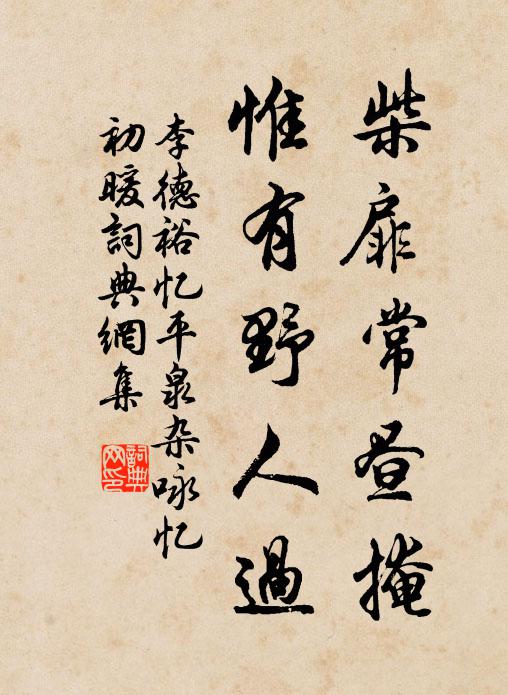 柴扉常昼掩
惟有野人過
李德裕忆平泉杂咏忆
初暖詞典網集
詞典
网印